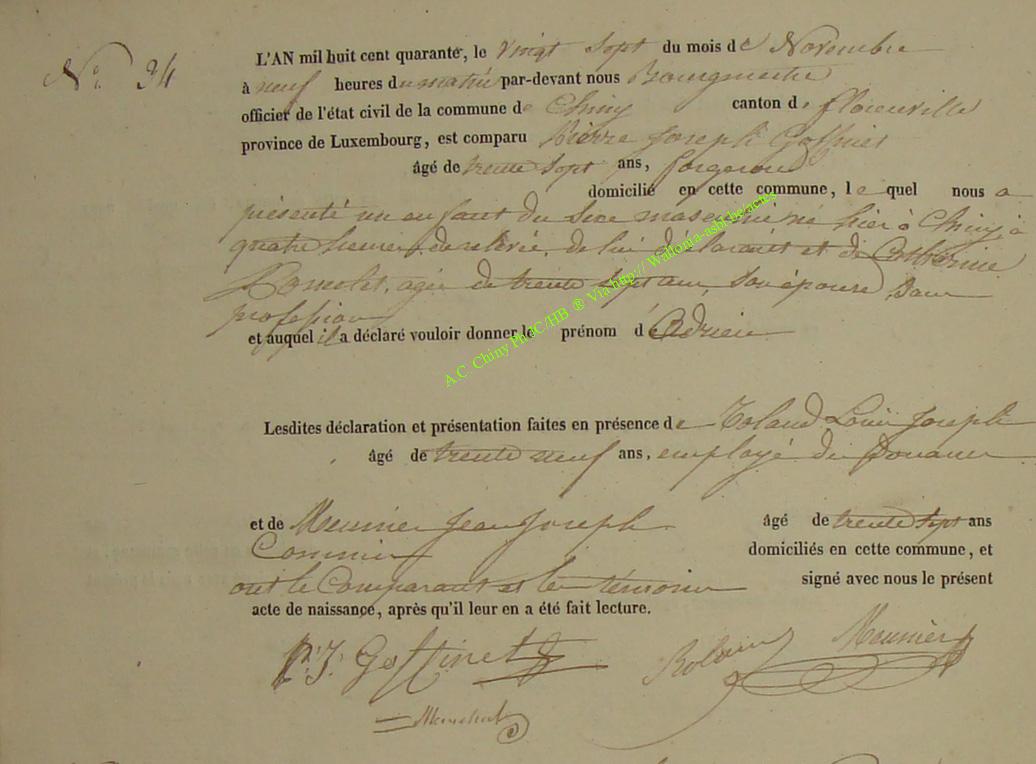 N.° 34
L'AN mil huit cent quarante, le vingt sept du mois de Novembre
à neuf heures du matin par-devant nous Bourgmestre
officier de l'état civil de la commune de Chiny canton de florenville
province de Luxembourg, est comparu Pierre Joseph Goffinet
âgé de trente sept ans, forgeron
domicilié en cette commune, le quel nous a
présenté un enfant du sexe masculin né hier à Chiny, à
quatre heures de relevée, de lui déclarant et de Catherine
agée de trente sept ans, son épouse, sans
profession
et auquel il a déclaré vouloir donner le prénom d'Adrien
Lesdites déclaration et présentation faites en présence de Roland Louis Joseph
âgé de trente neuf ans, employé des Douanes
et de Meunier Jean Joseph âgé de trente sept ans
Commis domiciliés en cette commune, et
ont le Comparant et les témoins signé avec nous le présent
acte de naissance, après qu'il leur en a été fait lecture.
P. J. Goffinet Roland Meunier
A.C. Chiny PhC/HB ® Via http://Wallonia-asbl.be/actes